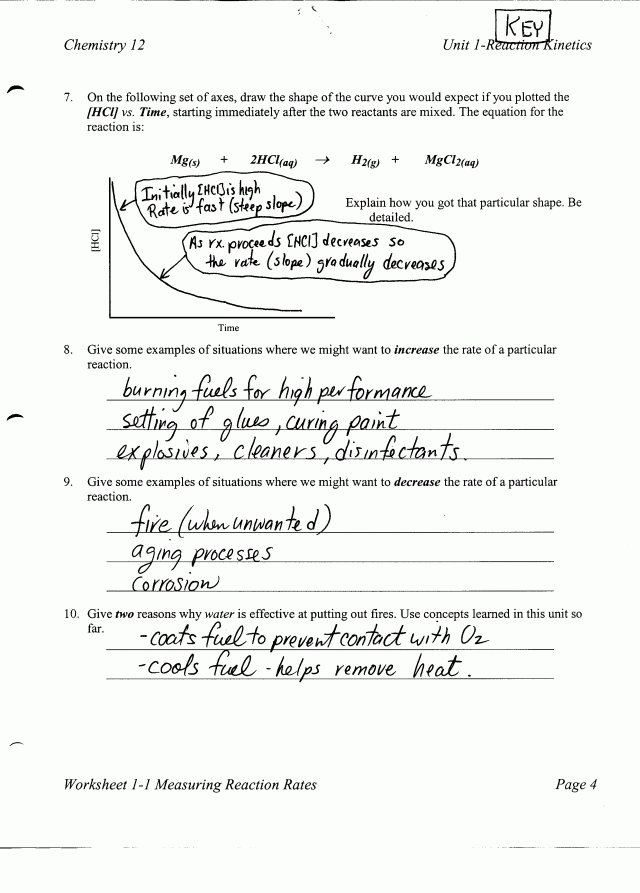 KEY
Chemistry 12 Unit 1-Reaction Kinetics
7. On the following set of axes, draw the shape of the curve you would expect if you plotted the
[HCl] vs. Time, starting immediately after the two reactants are mixed. The equation for the
reaction is:
Mg(s) + 2HCl(aq) → H2(g) + MgCl2(aq)
Initially [HCl] is high
Rate is fast (steep slope)
Explain how you got that particular shape. Be
detailed.
[HCl]
As rx. proceeds [HCl] decreases so
the rate (slope) gradually decreases
Time
8. Give some examples of situations where we might want to increase the rate of a particular
reaction.
burning fuels for high performance
setting of glues, curing paint
explosives, cleaners, disinfectants.
9. Give some examples of situations where we might want to decrease the rate of a particular
reaction.
fire (when unwanted)
aging processes
corrosion
10. Give two reasons why water is effective at putting out fires. Use concepts learned in this unit so
far.
-coats fuel to prevent contact with O2
-cools fuel - helps remove heat.
Worksheet 1-1 Measuring Reaction Rates Page 4